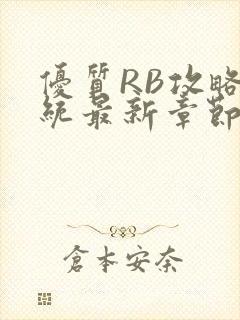 優質RB攻略
統最新章節
倉本安奈